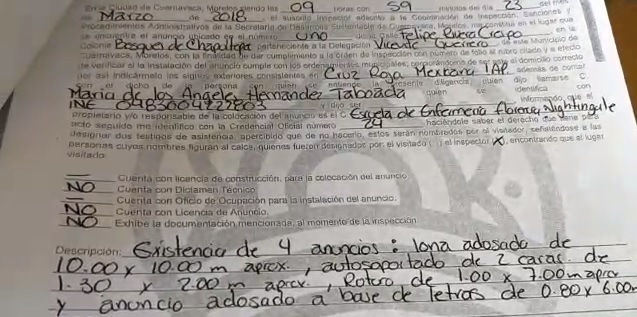 En la Ciudad de Cuernavaca, Morelos siendo las 09 horas con 59 minutos del día 23 del mes
de Marzo de 2018, el suscrito inspector adscrito a la Coordinación de Inspección, Sanciones y
Procedimientos Administrativos de la Secretaría de Desarrollo Sustentable de Cuernavaca, Morelos, me constituí en el lugar que
se encuentra el anuncio ubicado en el número Uno de la Calle Felipe Rivera Crespo en la
Colonia Bosques de Chapultepec perteneciente a la Delegación Vicente Guerrero de este Municipio de
Cuernavaca, Morelos, con la finalidad de dar cumplimiento a la orden de inspección con número de folio al rubro citado y a efecto
de verificar si la instalación del anuncio cumple con los ordenamientos municipales, cerciorándome de ser el domicilio correcto
por así indicármelo los signos exteriores consistentes en Cruz Roja Mexicana IAP además de contar
por el dicho de la persona con quien se entiende la presente diligencia, quien dijo llamarse C.
María de los Angeles Hernández Taboada quien se identifica con
INE 0483004722803 y dijo ser informando que el
propietario y/o responsable de la colocación del anuncio es el C. Escuela de Enfermería Florence Nightingale
acto seguido me identifico con la Credencial Oficial número 24 haciéndole saber el derecho que tiene para
designar dos testigos de asistencia, apercibido que de no hacerlo, estos serán nombrados por el visitador, señalándose a las
personas cuyos nombres figuran al calce, quienes fueron designados por el visitado ( ) el inspector (X), encontrando que el lugar
visitado:
Cuenta con licencia de construcción, para la colocación del anuncio
NO Cuenta con Dictamen Técnico
Cuenta con Oficio de Ocupación para la instalación del anuncio.
NO Cuenta con Licencia de Anuncio.
NO Exhibe la documentación mencionada, al momento de la inspección
Descripción: Existencia de 4 anuncios: lona adosado de
10.00 x 10.00 m aprox., autosoportado de 2 caras de
1.30 x 2.00 m aprox., Rotulo de 1.00 x 7.00 m aprox
y anuncio adosado a base de letras de 0.80 x 6.00m